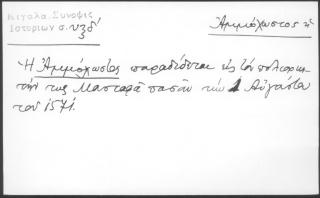 Κιγάλα. Σύνοψις
Ἱστοριῶν σ.
Ἀμμόχωστος ἡ
Ἡ Ἀμμόχωστος παραδίδεται εἰς τὸν πολιορκη-
τήν της Μουσταφᾶ πασᾶν τὴν 1 Αὐγούστου
τοῦ 1571.